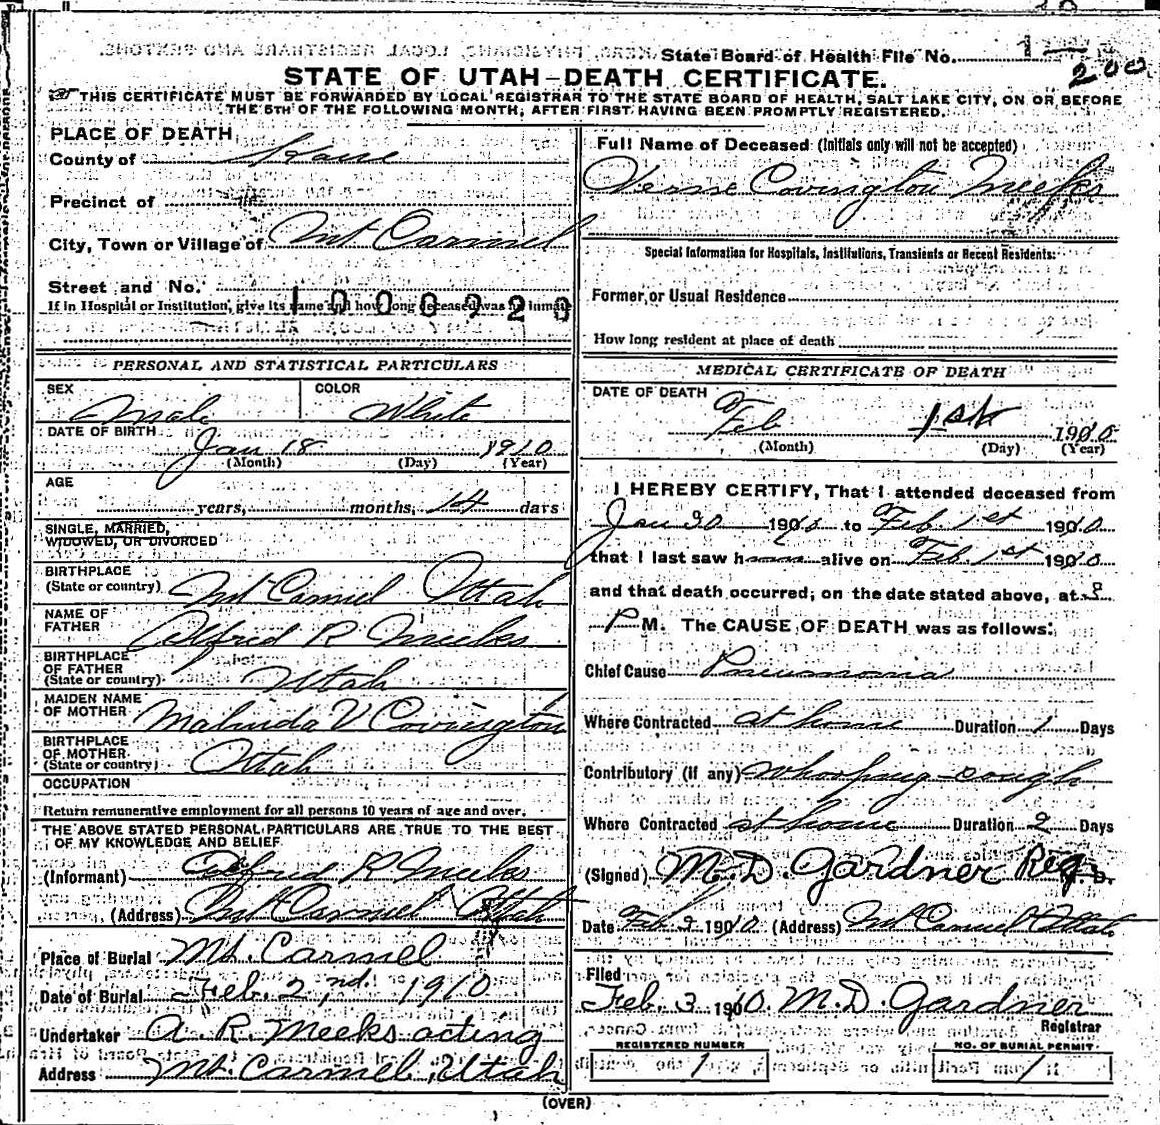 State Board of Health File No. 1
200
STATE OF UTAH—DEATH CERTIFICATE.
THIS CERTIFICATE MUST BE FORWARDED BY LOCAL REGISTRAR TO THE STATE BOARD OF HEALTH, SALT LAKE CITY, ON OR BEFORE
THE 5TH OF THE FOLLOWING MONTH, AFTER FIRST HAVING BEEN PROMPTLY REGISTERED.
PLACE OF DEATH
County of Kane
Precinct of
City, Town or Village of Mt Carmel
Street and No.
If in Hospital or Institution, give its name and how long deceased was an inmate
PERSONAL AND STATISTICAL PARTICULARS
SEX Male COLOR White
DATE OF BIRTH Jan 18 1910
(Month) (Day) (Year)
AGE
years, months, 14 days
SINGLE, MARRIED,
WIDOWED, OR DIVORCED
BIRTHPLACE
(State or country) Mt Carmel Utah
NAME OF
FATHER Alfred R Meeks
BIRTHPLACE
OF FATHER
(State or country) Utah
MAIDEN NAME
OF MOTHER Malinda V Covington
BIRTHPLACE
OF MOTHER
(State or country) Utah
OCCUPATION
Return remunerative employment for all persons 10 years of age and over.
THE ABOVE STATED PERSONAL PARTICULARS ARE TRUE TO THE BEST
OF MY KNOWLEDGE AND BELIEF
(Informant) Alfred R Meeks
(Address) Mt Carmel Utah
Place of Burial Mt. Carmel
Date of Burial Feb. 2nd. 1910
Undertaker A. R. Meeks acting
Address Mt. Carmel, Utah
Full Name of Deceased (Initials only will not be accepted)
Covington Meeks
Special Information for Hospitals, Institutions, Transients or Recent Residents:
Former or Usual Residence
How long resident at place of death
MEDICAL CERTIFICATE OF DEATH
DATE OF DEATH
Feb 1st 1910
(Month) (Day) (Year)
I HEREBY CERTIFY, That I attended deceased from
Jan 30 1910 to Feb. 1st 1910
that I last saw him alive on Feb. 1st 1910
and that death occurred, on the date stated above, at
P M. The CAUSE OF DEATH was as follows:
Chief Cause Pneumonia
Where Contracted at home Duration 1 Days
Contributory (if any) whooping-cough
Where Contracted at home Duration 2 Days
(Signed) M. D. Gardner Reg.
Date Feb 2 1910 (Address) Mt Carmel Utah
Filed
Feb. 3 1910. M. D. Gardner
Registrar
REGISTERED NUMBER
1
NO. OF BURIAL PERMIT
1
(OVER)